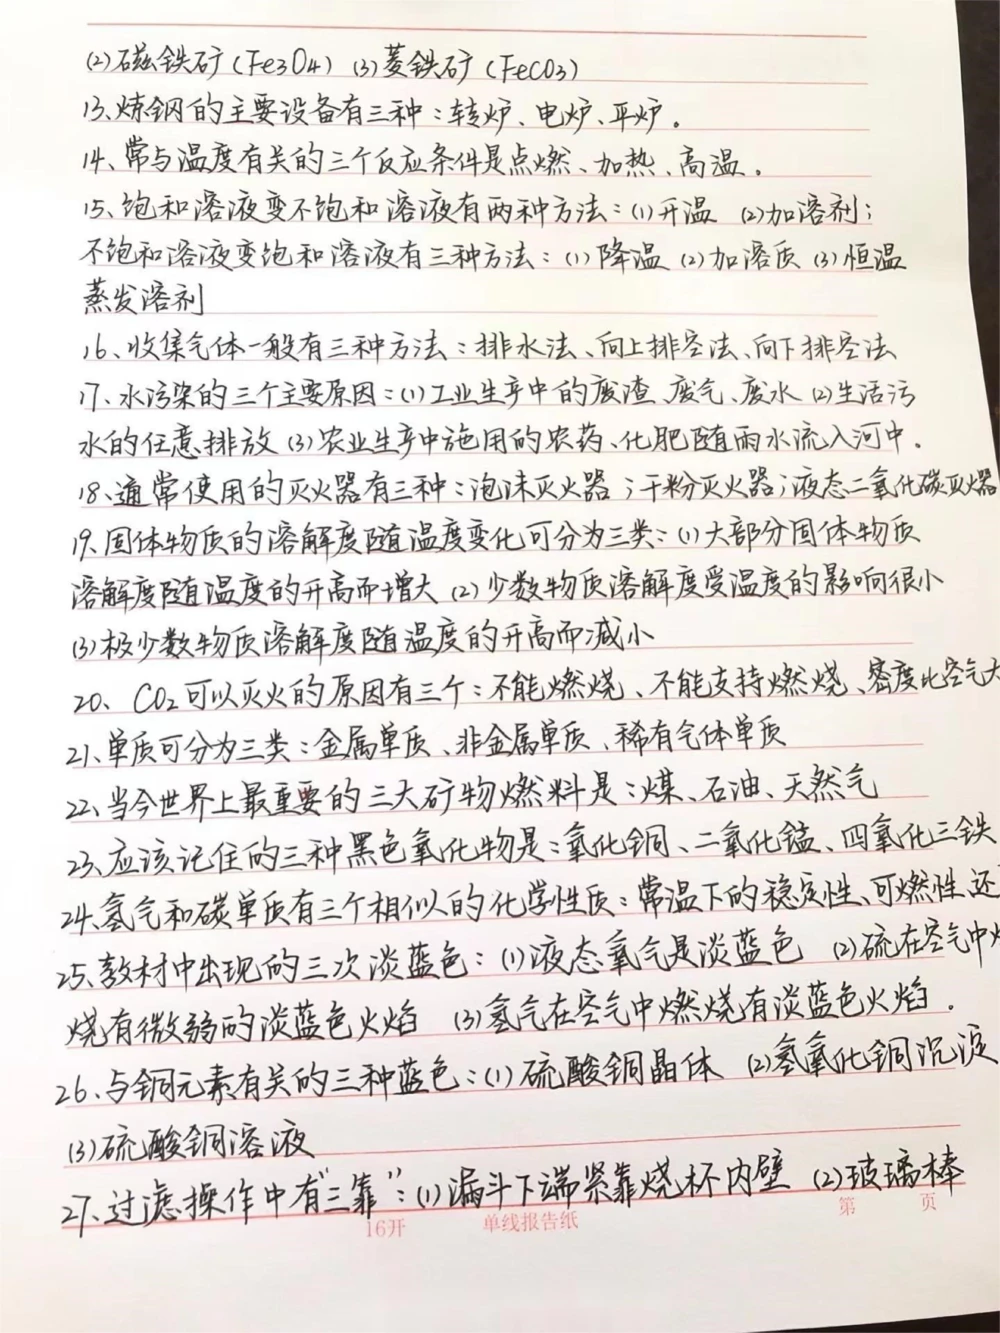 (2)磁铁矿(Fe3O4) (3)菱铁矿(FeCO3)
13、炼钢的主要设备有三种：转炉、电炉、平炉。
14、常与温度有关的三个反应条件是点燃、加热、高温。
15、饱和溶液变不饱和溶液有两种方法：(1)升温 (2)加溶剂；
不饱和溶液变饱和溶液有三种方法：(1)降温 (2)加溶质 (3)恒温
蒸发溶剂
16、收集气体一般有三种方法：排水法、向上排空法、向下排空法
17、水污染的三个主要原因：(1)工业生产中的废渣、废气、废水 (2)生活污
水的任意排放 (3)农业生产中施用的农药、化肥随雨水流入河中。
18、通常使用的灭火器有三种：泡沫灭火器；干粉灭火器；液态二氧化碳灭火器
19、固体物质的溶解度随温度变化可分为三类：(1)大部分固体物质
溶解度随温度的升高而增大 (2)少数物质溶解度受温度的影响很小
(3)极少数物质溶解度随温度的升高而减小
20、CO2可以灭火的原因有三个：不能燃烧、不能支持燃烧、密度比空气大
21、单质可分为三类：金属单质、非金属单质、稀有气体单质
22、当今世界上最重要的三大矿物燃料是：煤、石油、天然气
23、应该记住的三种黑色氧化物是：氧化铜、二氧化锰、四氧化三铁
24、氢气和碳单质有三个相似的化学性质：常温下的稳定性、可燃性、还
25、教材中出现的三次淡蓝色：(1)液态氧气是淡蓝色 (2)硫在空气中
烧有微弱的淡蓝色火焰 (3)氢气在空气中燃烧有淡蓝色火焰.
26、与铜元素有关的三种蓝色：(1)硫酸铜晶体 (2)氢氧化铜沉淀
(3)硫酸铜溶液
27、过滤操作中有“三靠”：(1)漏斗下端紧靠烧杯内壁 (2)玻璃棒
16开 单线报告纸 第 页